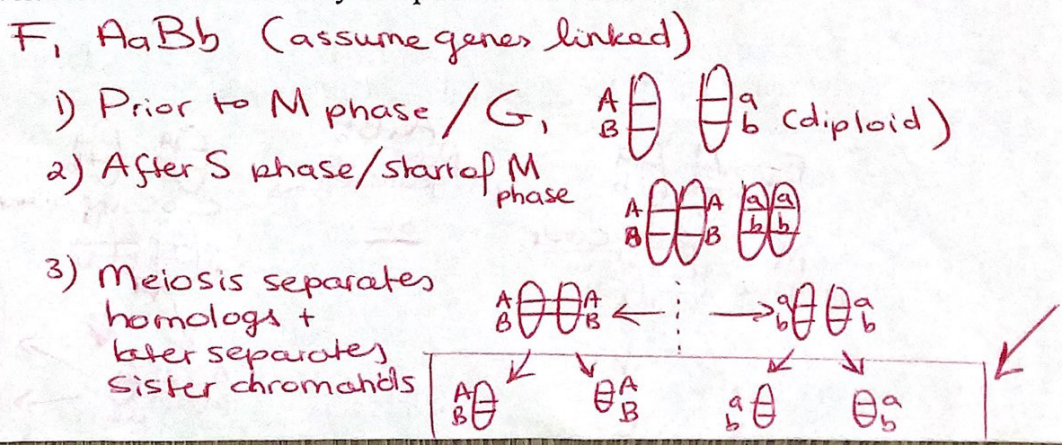 F₁ AaBb (assume genes linked)
1) Prior to M phase/G₁ A B a b (diploid)
2) After S phase/start of M phase
A B A B a b a b
3) Meiosis separates
homologs +
later separates
sister chromatids
A B A B a b a b
A B A B a b a b